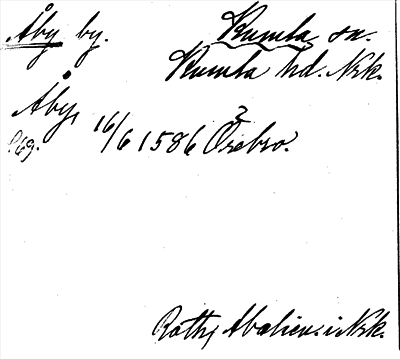 Åby by. Kumla sn.
Kumla hd. Nrk.
Åby, 16/6 1586 Örebro.
Rothz i Nrk.